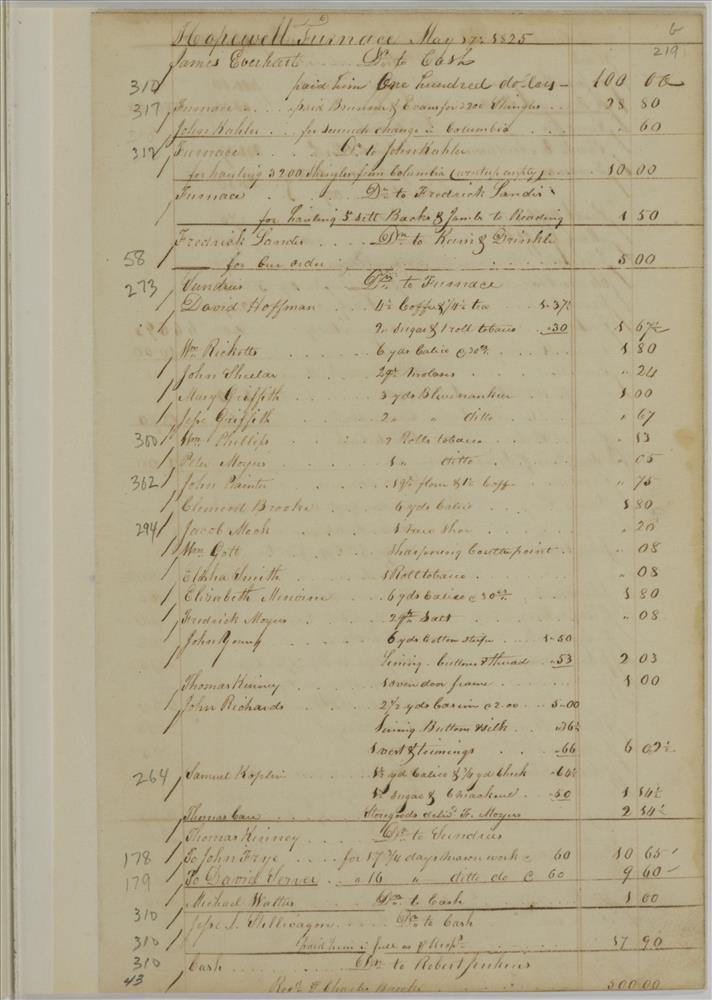 6
219
Hopewell Furnace May 17th 1825
James Everhart Dr. to Cash
310 paid him One hundred dollars 100 00
317 Furnace paid & Evans for 3200 Shingles 28 80
John Kahler for change in Columbia " 60
312 Furnace Dr. to John Kahler
for hauling 3200 Shingles from Columbia ( empty) 10 00
Furnace Dr. to Fredrick Sander
for hauling 5 sett Backs & Jambs to Reading 1 50
Fredrick Sander Dr. to Keim & Drinkle
58 for Our order 5 00
273 Sundries Drs. to Furnace
David Hoffman Coffee & tea 1.37½
2lb Sugar & 1 roll tobacco .30 1 67½
Wm. Ricketts 6 yds Calico @ 30cts. 1 80
John Sheeler 2 qts Molases " 24
Mary Griffith 3 yds Blue nankeen 1 00
Jesse Griffith 2 " " ditto " 67
300 Wm. Phillips 2 Rolls tobacco " 13
Peter Moyers 1 " ditto " 05
302 John Painter flour & Coffe " 75
Clement Brooke 6 yds Calico 1 80
294 Jacob Mock 1 Shoe " 20
Wm. Gott Sharpning Coulter point " 08
Elisha Smith 1 Roll tobacco " 08
Elizabeth 6 yds Calico @ 30cts. 1 80
Fredrick Moyers 2 qts Salt " 08
John Young 6 yds Cotton stripe 1.50
Lining buttons & thread .53 2 03
Thomas Kinney 1 oven door frame 1 00
John Richards 2½ yds @ 2.00 5.00
Lining Buttons & silk .36½
& trimings .66 6 02½
264 Samuel Koplin yd Calico & ¾ yd Check .64½
Sugar & .50 1 14½
Thomas Care Storegoods delivd. Fr. Moyers 2 54½
Thomas Kinney Dr. to Sundries
178 To John Frye for 17¾ days mason work @ 60 10 65
179 To David Server " 16 " ditto do @ 60 9 60
Michael Walters Dr. to Cash 1 00
310 Jesse S. Stillwagon Dr. to Cash
310 paid him in full 17 90
310 Cash Dr. to Robert Jenkins
43 Recd. of Charles Brooke 500 00